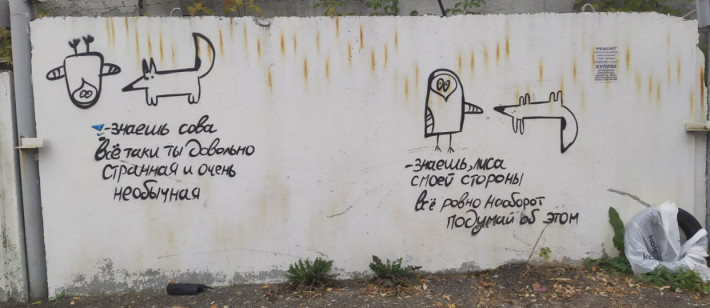 -знаешь сова
всё таки ты довольно
странная и очень
необычная
-знаешь, лиса
с моей стороны
всё ровно наоборот
подумай об этом
РЕМОНТ